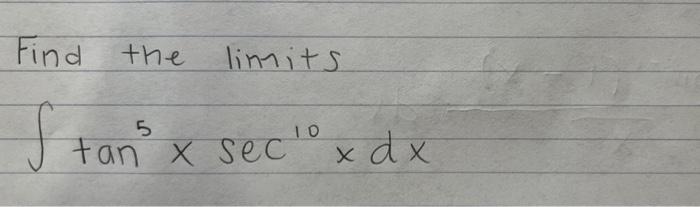 Find the limits
∫ tan⁵ x sec¹⁰ x dx